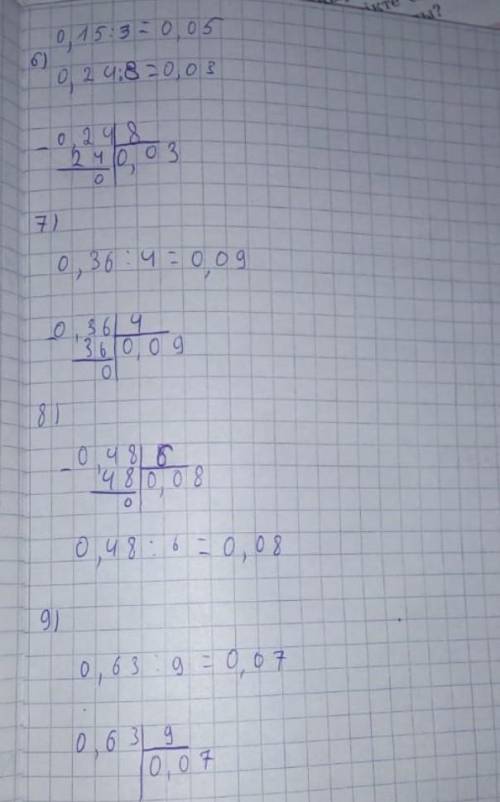 0,15:3=0,05
6)
0,24:8=0,03
-0,24 8
24 0,03
0
7)
0,36:4=0,09
-0,36 4
36 0,09
0
8)
-0,48 6
48 0,08
0
0,48:6=0,08
9)
0,63:9=0,07
0,63 9
0,07